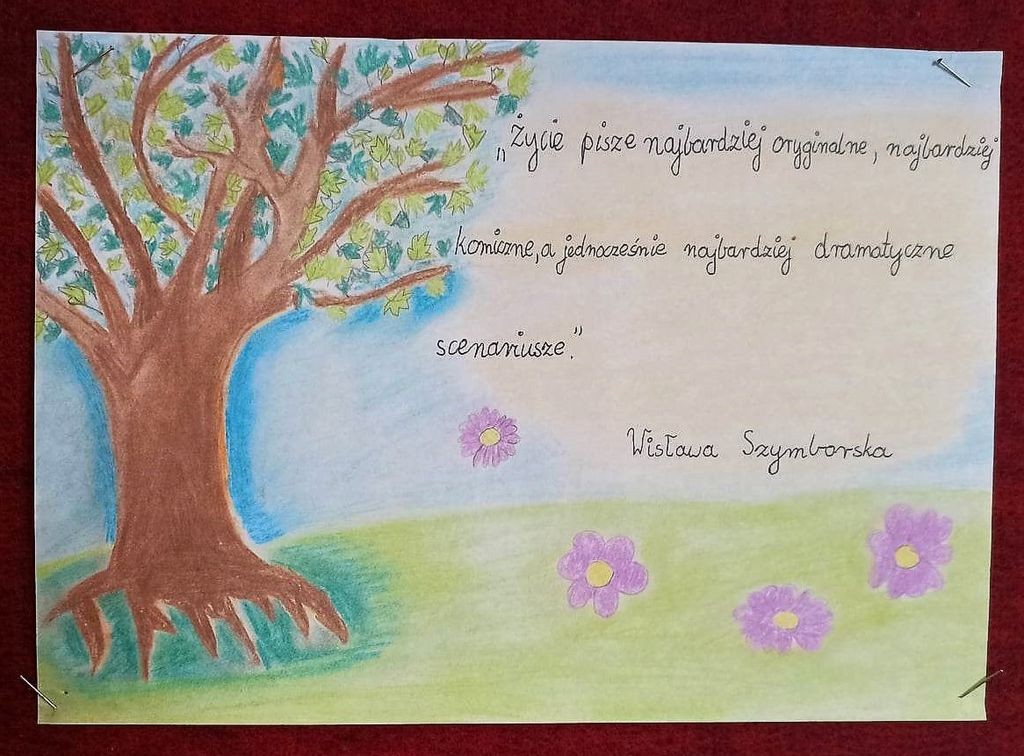 „Życie pisze najbardziej oryginalne, najbardziej
komiczne, a jednocześnie najbardziej dramatyczne
scenariusze."
Wisława Szymborska